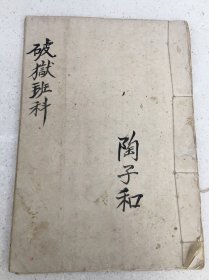 破獄班科
陶子和